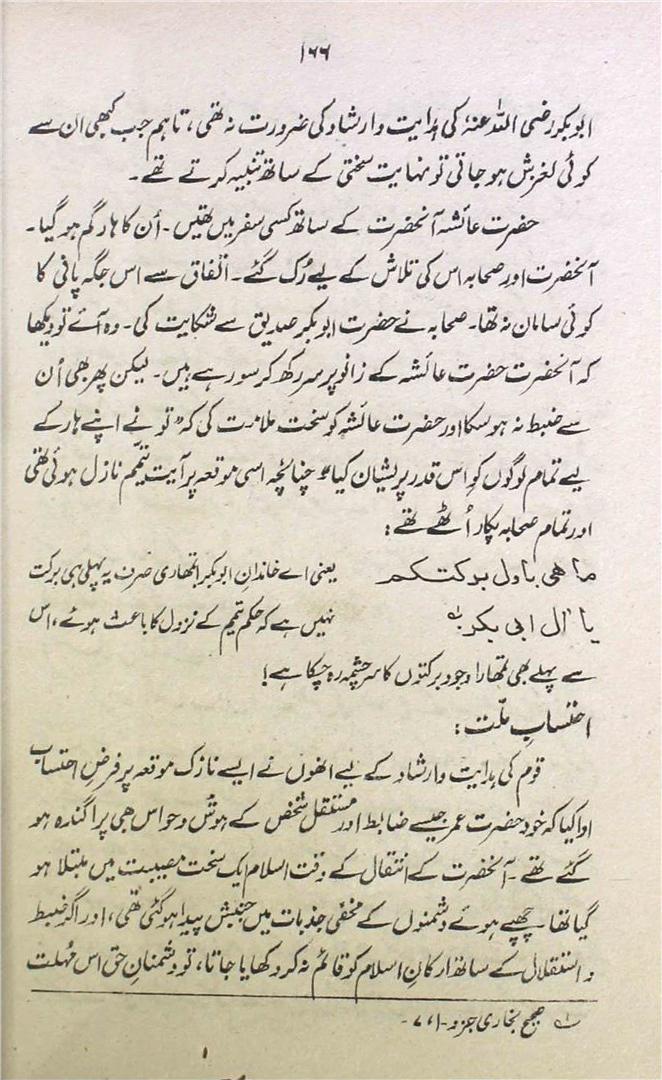 ۱۶۶
ابوبکر رضی اللہ عنہٗ کی ہدایت وارشاد کی ضرورت نہ تھی، تاہم جب کبھی ان سے
کوئی لغزش ہو جاتی تو نہایت سختی کے ساتھ تنبیہ کرتے تھے۔
حضرت عائشہ آنحضرت کے ساتھ کسی سفر میں تھیں۔ اُن کا ہار گم ہو گیا۔
آنحضرت اور صحابہ اس کی تلاش کے لیے رُک گئے۔ اتفاق سے اس جگہ پانی کا
کوئی سامان نہ تھا۔ صحابہ نے حضرت ابوبکر صدیق سے شکایت کی۔ وہ آئے تو دیکھا
کہ آنحضرت حضرت عائشہ کے زانو پر سر رکھ کر سو رہے ہیں۔ لیکن پھر بھی اُن
سے ضبط نہ ہو سکا اور حضرت عائشہ کو سخت ملامت کی کہ "تو نے اپنے ہار کے
لیے تمام لوگوں کو اس قدر پریشان کیا" چنانچہ اسی موقعہ پر آیت تیمّم نازل ہوئی تھی
اور تمام صحابہ پکار اُٹھے تھے:
ما ھی باول برکتکم یعنی اے خاندانِ ابوبکر! تمھاری صرف یہ پہلی ہی برکت
یا اٰل ابی بکر؂۱ نہیں ہے کہ حکم تیمم کے نزول کا باعث ہوئے، اس
سے پہلے بھی تمھارا وجود برکتوں کا سرچشمہ رہ چکا ہے!
احتسابِ ملّت:
قوم کی ہدایت وارشاد کے لیے انھوں نے ایسے نازک موقعہ پر فرضِ احتساب
ادا کیا کہ خود حضرت عمر جیسے ضابط اور مستقل شخص کے ہوش وحواس بھی پراگندہ ہو
گئے تھے۔ آنحضرت کے انتقال کے وقت اسلام ایک سخت مصیبت میں مبتلا ہو
گیا تھا۔ چھپے ہوئے دشمنوں کے مخفی جذبات میں جنبش پیدا ہو گئی تھی، اور اگر ضبط
و استقلال کے ساتھ ارکانِ اسلام کو قائم نہ کر دکھایا جاتا، تو دشمنانِ حق اس مُہلت
؂۱ صحیح بخاری جزو۔۱، ۷۔